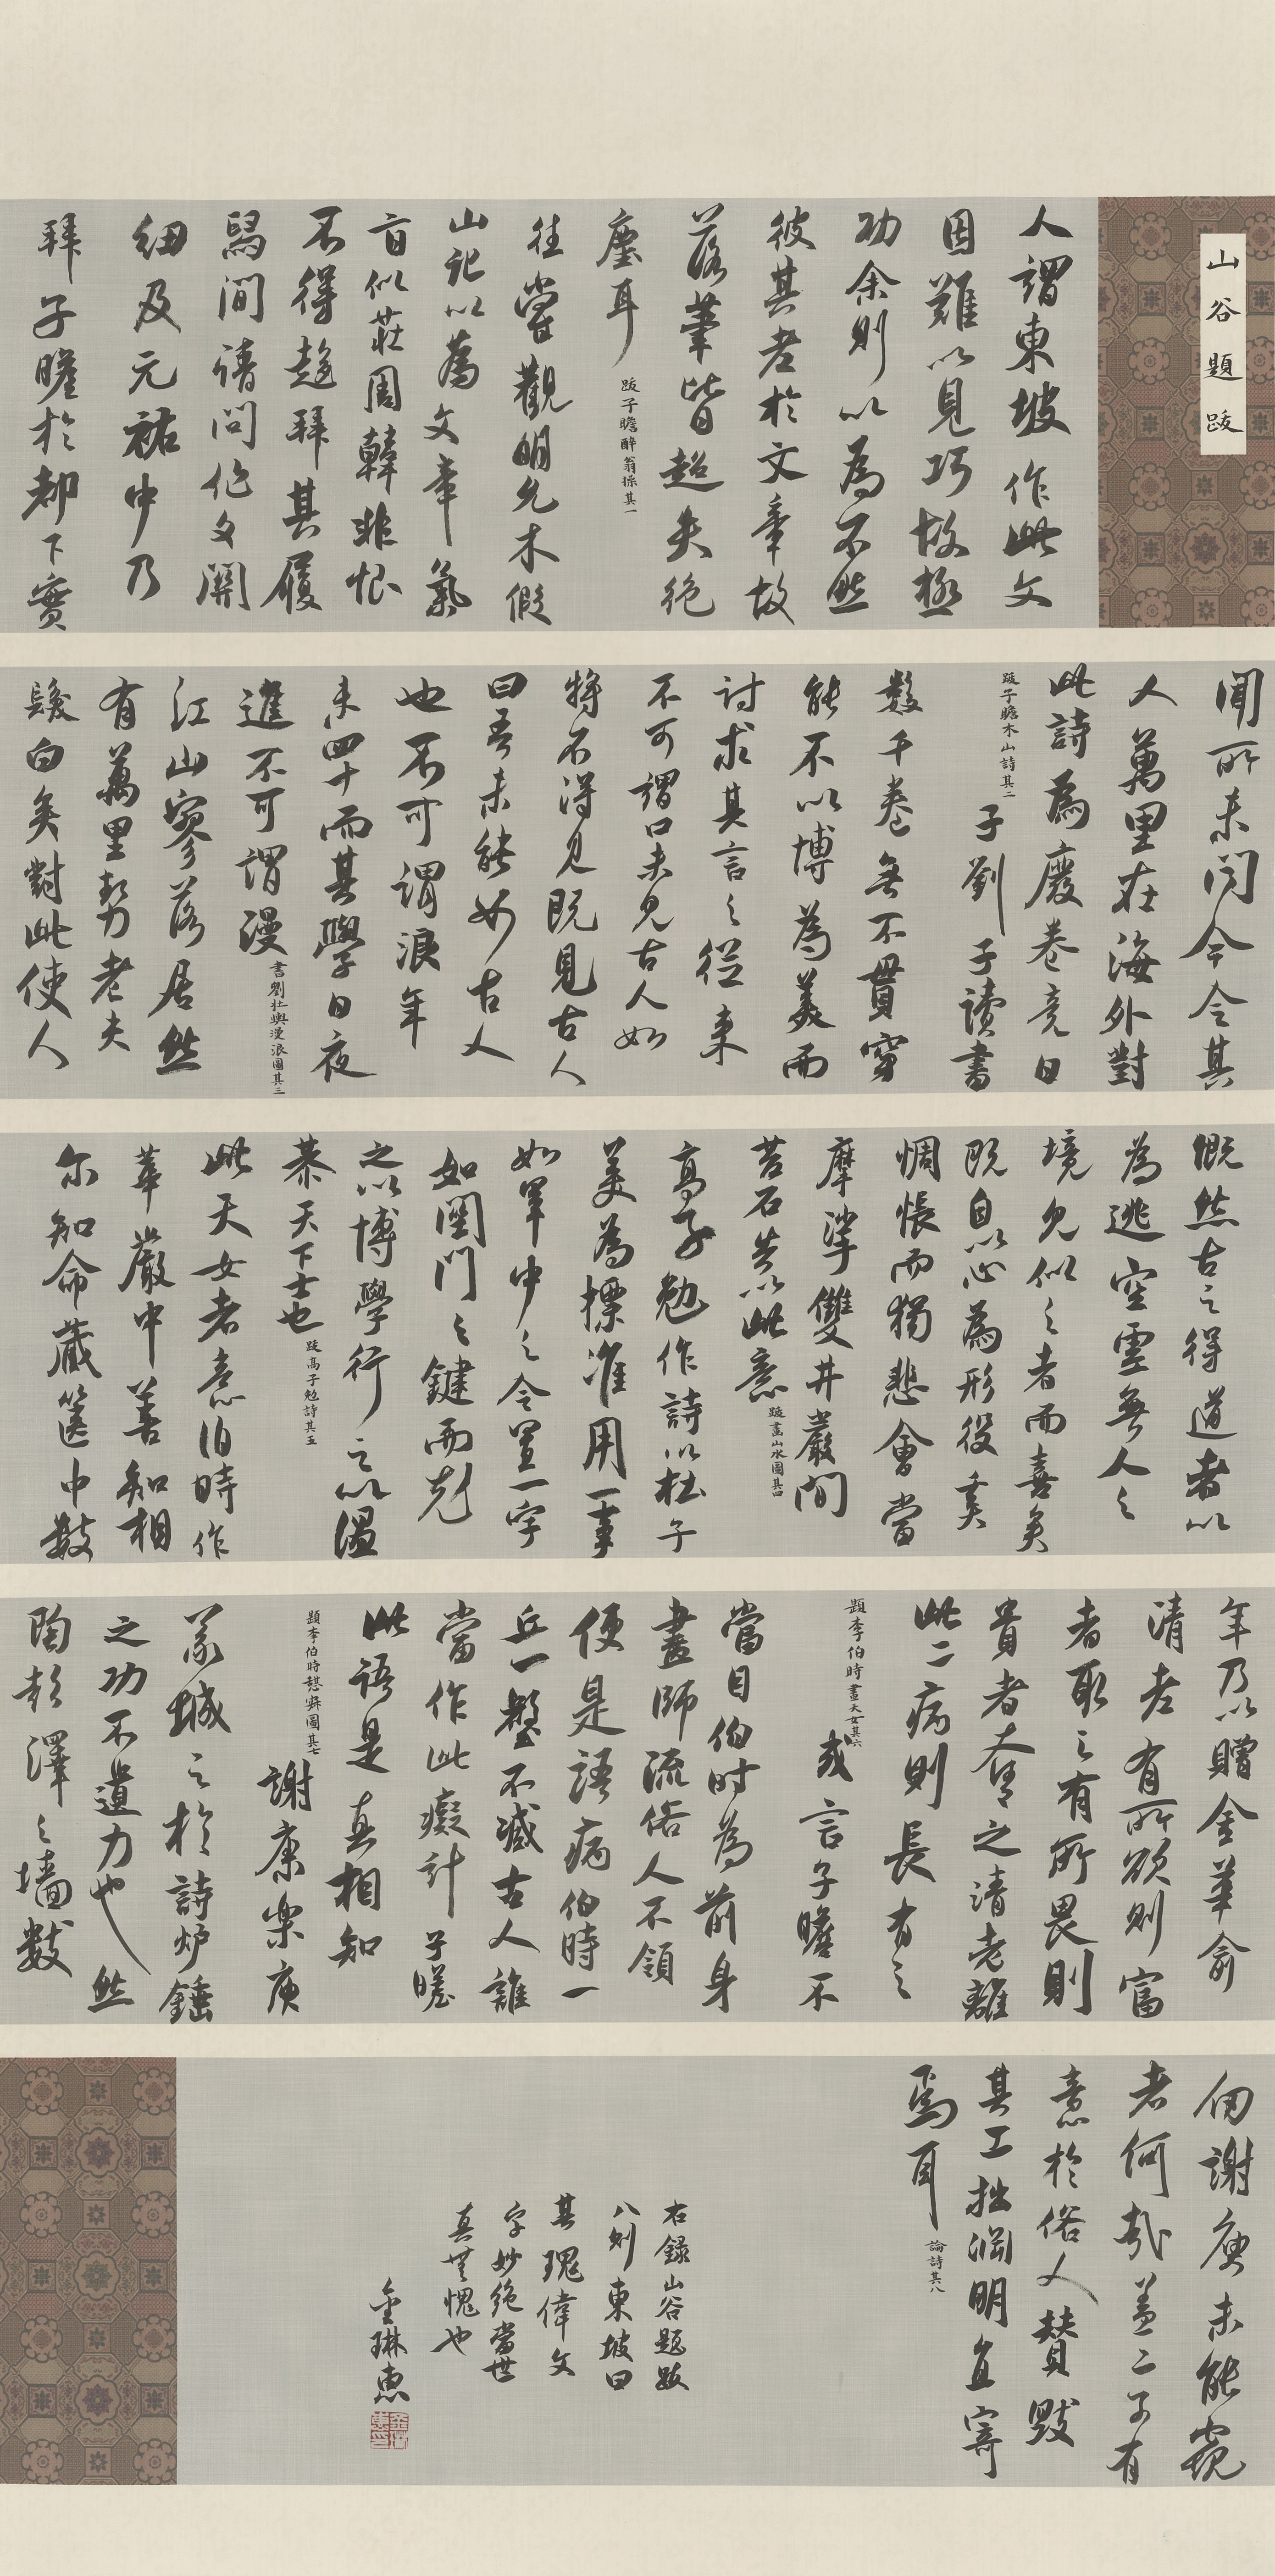 山谷題跋
人謂東坡作此文
因難以見巧故極
功余則以為不然
彼其老於文章故
落筆皆超失絕
塵耳
跋子瞻醉翁操其一
往嘗觀明允木假
山記以為文章氣
旨似莊周韓非恨
不得趍拜其履
舄間請問作文關
紐及元祐中乃
拜子瞻於都下實
聞所未聞今令其
人萬里在海外對
此詩為廢卷竟日
跋子瞻木山詩其二
子劉子讀書
數千卷無不貫穿
能不以博為美而
討求其言之從來
不可謂口未見古人如
將不得見既見古人
曰吾未能如古人
也不可謂浪年
未四十而其學日夜
進不可謂漫
書劉壯輿漫浪圖其三
江山寥落居然
有萬里勢老夫
髮白矣對此使人
慨然古之得道者以
為逃空虛無人之
境見似之者而喜矣
既自以心為形役奚
惆悵而獨悲會當
摩挲雙井巖間
苔石告以此意
跋畫山水圖其四
高子勉作詩以杜子
美為摽準用一事
如軍中之令置一字
如關門之鍵而充
之以博學行之以溫
恭天下士也
跋高子勉詩其五
此天女者意伯時作
華嚴中善知相
尔知命藏篋中數
年乃以贈金華俞
清老有所欲則富
者取之有所畏則
貴者奪之清老離
此二病則長有之
題李伯時畫天女其六
或言子瞻不
當目伯時為前身
畫師流俗人不領
便是語病伯時一
丘一壑不減古人誰
當作此癡計子瞻
此語是真相知
題李伯時憩寂圖其七
謝康樂庾
義城之於詩炉錘
之功不遺力也然
陶彭澤之墻數
仞謝庾未能窺
者何哉蓋二子有
意於俗人贊毀
其工拙淵明直寄
焉耳
論詩其八
右錄山谷題跋
八則東坡曰
其瑰偉文
字妙絕當世
真無愧也
金琳惠